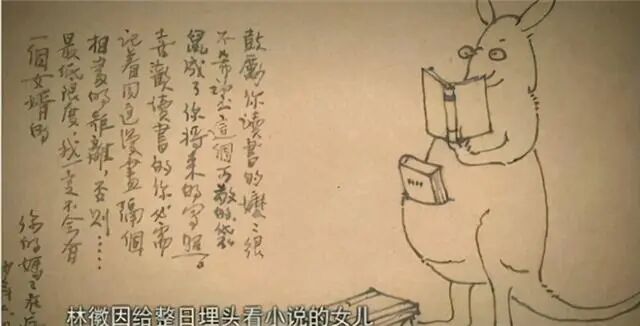 鼓勵你讀書的嬤〻很
不希望這個可敬的袋
鼠成了你將來的寫照。
喜歡讀書的你必需
記着同這漫畫隔個
相當的距離，否則……
最低限度，我一定不会有
一個女婿的
你的媽〻
林徽因给整日埋头看小说的女儿